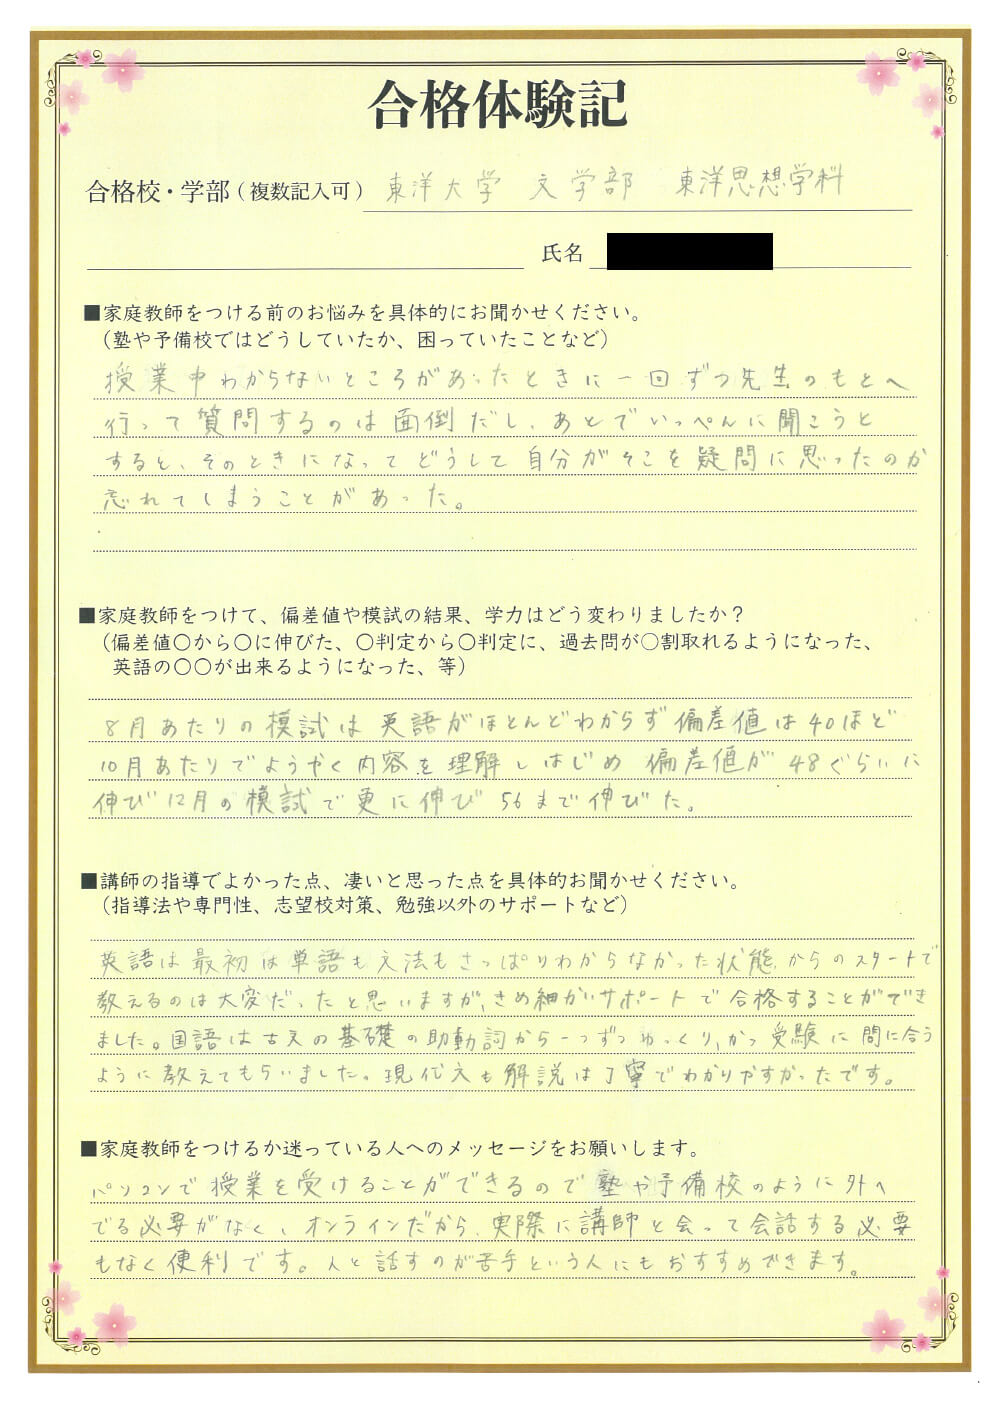 合格体験記
合格校・学部（複数記入可） 東洋大学 文学部 東洋思想学科
氏名
■家庭教師をつける前のお悩みを具体的にお聞かせください。
（塾や予備校ではどうしていたか、困っていたことなど）
授業中わからないところがあったときに一回ずつ先生のもとへ
行って質問するのは面倒だし、あとでいっぺんに聞こうと
すると、そのときになってどうして自分がそこを疑問に思ったのか
忘れてしまうことがあった。
■家庭教師をつけて、偏差値や模試の結果、学力はどう変わりましたか？
（偏差値〇から〇に伸びた、〇判定から〇判定に、過去問が〇割取れるようになった、
英語の〇〇が出来るようになった、等）
8月あたりの模試は英語がほとんどわからず偏差値は40ほど
10月あたりでようやく内容を理解しはじめ偏差値が48ぐらいに
伸び12月の模試で更に伸び56まで伸びた。
■講師の指導でよかった点、凄いと思った点を具体的お聞かせください。
（指導法や専門性、志望校対策、勉強以外のサポートなど）
英語は最初は単語も文法もさっぱりわからなかった状態からのスタートで
教えるのは大変だったと思いますが、きめ細かいサポートで合格することができ
ました。国語は古文の基礎の助動詞から一つずつゆっくり、かつ受験に間に合う
ように教えてもらいました。現代文も解説は丁寧でわかりやすかったです。
■家庭教師をつけるか迷っている人へのメッセージをお願いします。
パソコンで授業を受けることができるので塾や予備校のように外へ
でる必要がなく、オンラインだから、実際に講師と会って会話する必要
もなく便利です。人と話すのが苦手という人にもおすすめできます。